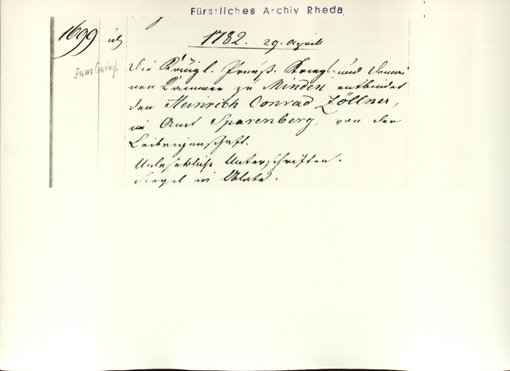 Fürstliches Archiv Rheda
1699
1782. 29. April
Die Königl. Preuß. Kriegs- und Domai
nen Kammer zu Minden entbindet
den Heinrich Conrad Zöllner,
im Amt Sparenberg, von der
Leibeigenschaft.
Unleserliche Unterschriften.
Siegel in Oblate.